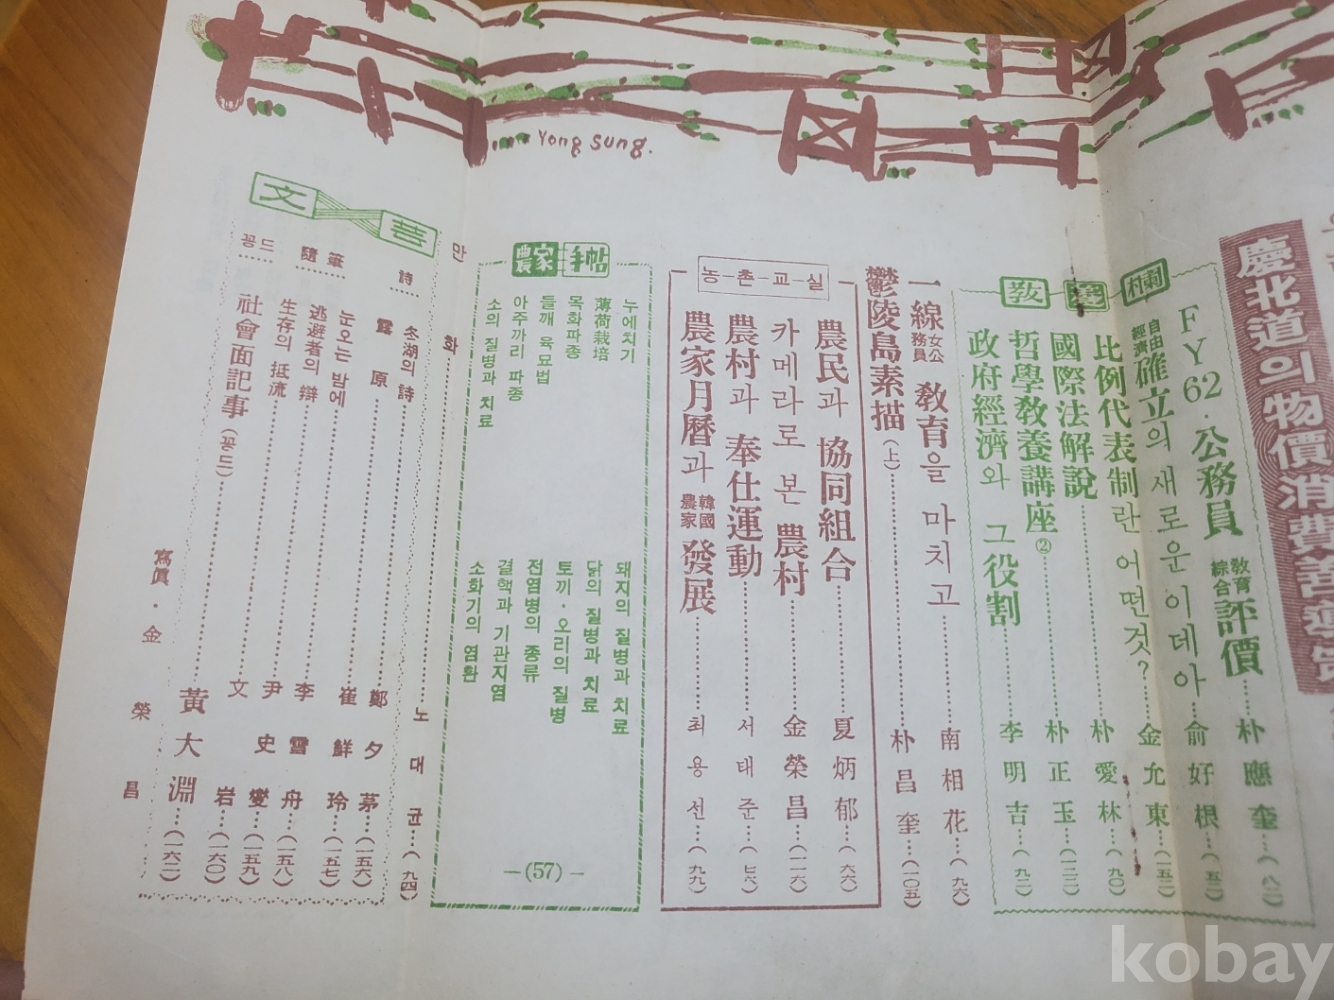 Yong Sung.
慶北道의 物價消費善導策
教養欄
FY62·公務員 教育綜合 評價……朴應奎…(八二)
自由經濟 確立의 새로운 이데아……兪好根…(五二)
比例代表制란 어떤것?……金允東…(一五二)
國際法解說……朴愛林…(九〇)
哲學敎養講座②……朴正玉…(一三二)
政府經濟와 그 役割……李明吉…(九二)
一線女公務員 敎育을 마치고……南相花…(九六)
鬱陵島素描(上)……朴昌奎…(一〇五)
농-촌-교-실
農民과 協同組合……夏炳郁…(六六)
카메라로 본 農村……金榮昌…(一一六)
農村과 奉仕運動……서태준…(七六)
農家月曆과 韓國農家 發展……최용선…(九九)
農家手帖
누에치기
薄荷栽培
목화파종
들깨 육묘법
아주까리 파종
소의 질병과 치료
돼지의 질병과 치료
닭의 질병과 치료
토끼·오리의 질병
전염병의 종류
결핵과 기관지염
소화기의 염환
—(57)—
만화……노대균…(九四)
文芸
詩
冬湖의 詩……鄭夕茅…(一五六)
雪原……崔鮮玲…(一五七)
隨筆
눈오는 밤에……李雪舟…(一五八)
逃避者의 辯……尹史燮…(一五九)
生存의 抵流……文岩…(一六〇)
꽁드
社會面記事(꽁드)……黃大淵…(一六二)
寫眞·金榮昌
kobay